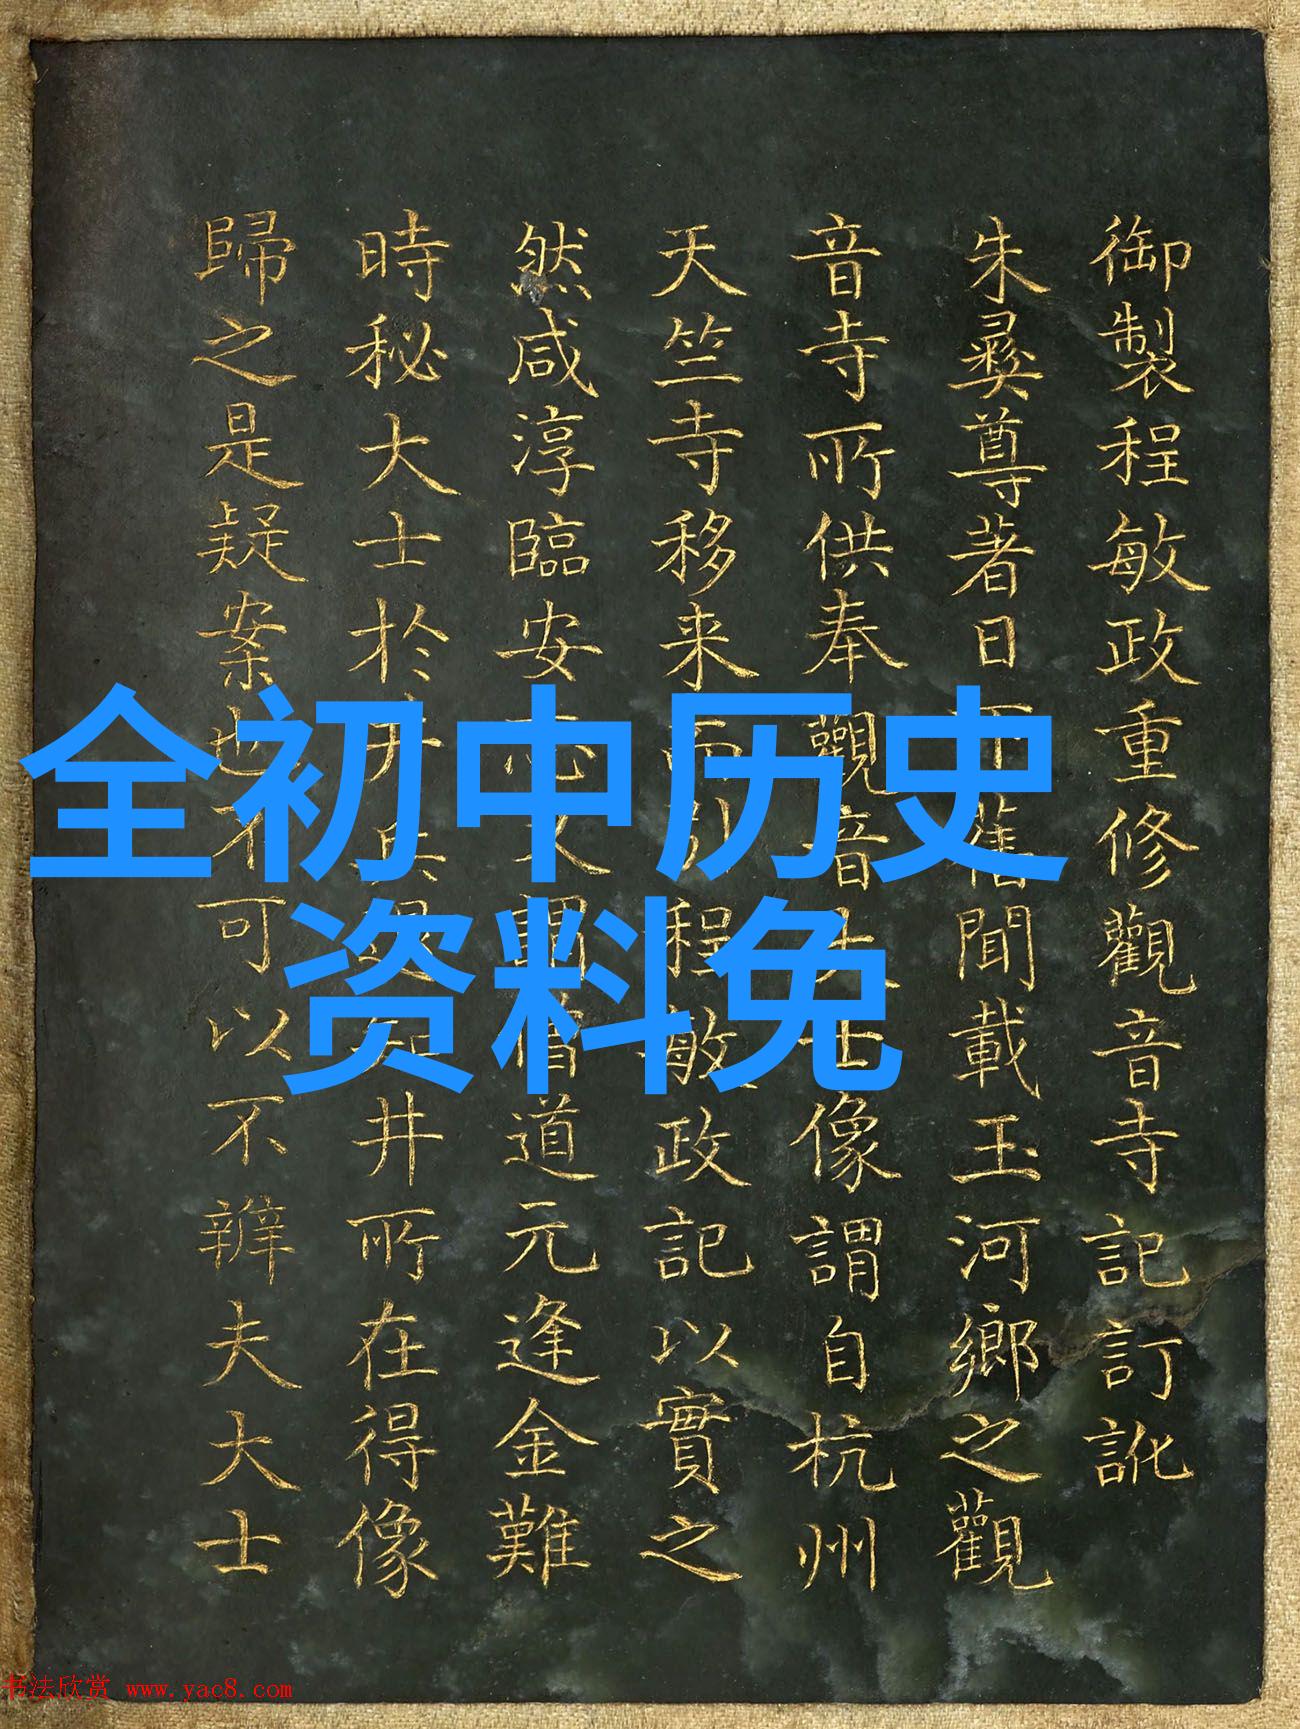 御製程敏政重修觀音寺記訂訛
朱彝尊著日下舊聞載玉河鄉之觀
音寺所供奉觀音大士像謂自杭州
天竺寺移来而引程敏政記以實之
然咸淳臨安志又謂僧道元逢金難
時秘大士於井兵退知井所在得像
歸之是疑案也不可以不辨夫大士
全初中历史
资料免
书法欣赏 www.yac8.com